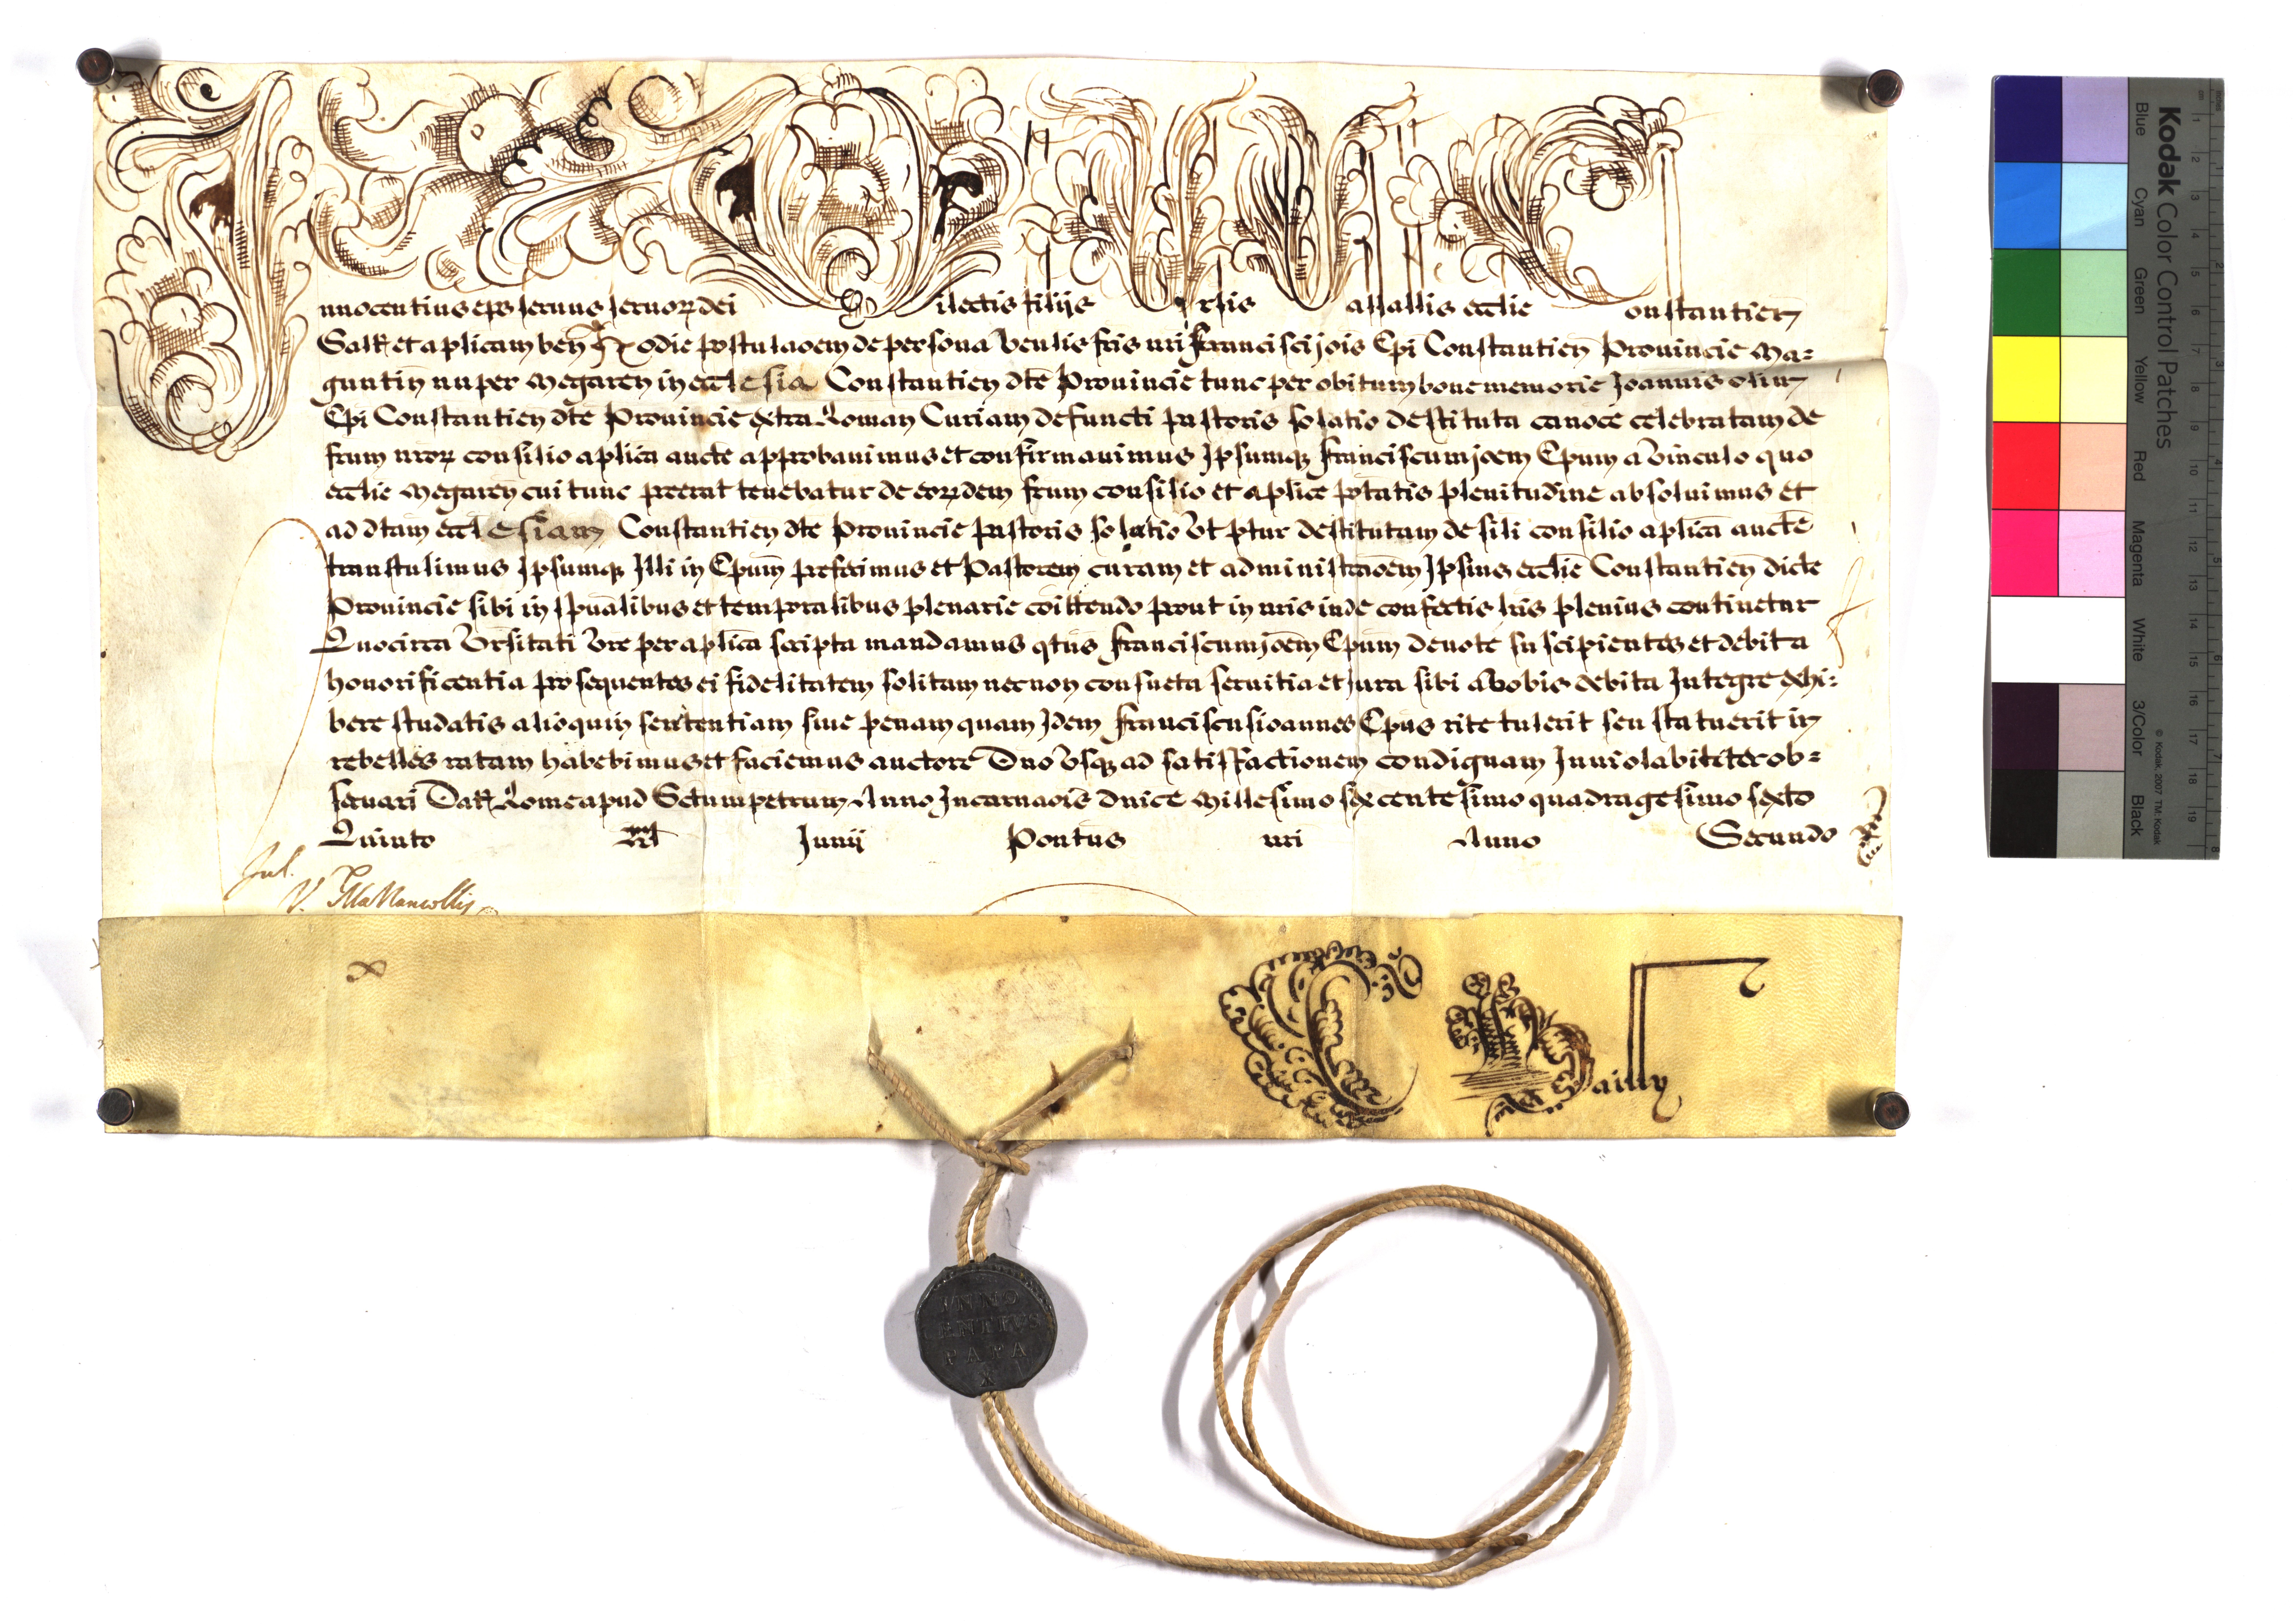 Innocentius eps seruus seruoꝝ dei Dilectis filijs Vniuersis Vasallis ecclie Constantien
Saltem et aplicam ben Hodie postulaoem de persona Venlis fris nri Francisci jois Epi Constantien Prouincie Ma=
guntin nuper Megaren in ecclesia Constantien dte Prouincie tunc per obitum bone memorie Joannis olim
Epi Constantien dte Prouincie extra Roman Curiam defuncti pastoris solatio destituta canoce celebratam de
frum nroꝝ consilio aplica aucte approbauimus et confirmauimus Ipsumqꝫ Franciscum joem Epum a Vinculo quo
ecclie Megaren cui tunc preerat tenebatur de eoꝝdem frum consilio et aplice ptatis plenitudine absoluimus et
ad dtam ecclesiam Constantien dte Prouincie pastoris solatio Vt ptur destitutam de sili consilio aplica aucte
transtulimus Ipsumqꝫ Illi in Epum prefecimus et Pastorem curam et administraoem Ipsius ecclie Constantien dicte
Prouincie sibi in spualibus et temporalibus plenarie coittendo prout in nris inde confectis lris plenius continetur
Quocirca Vrsitati Vre per aplica scripta mandamus qtus Franciscum joem Epum deuote suscipientes et debita
honorificentia prosequentes ei fidelitatem solitam necnon consueta seruitia et Jura sibi a Vobis debita Integre exhi=
bere studatis alioquin sententiam siue penam quam Idem Franciscus ioannes Epus rite tulerit seu statuerit in
rebelles ratam habebimus et faciemus auctore Dno Vsqꝫ ad satisfactionem condignam Inuiolabiliter ob=
seruari Dat Rome apud Sctum petrum Anno Incarnaois dnice Millesimo sexcentesimo quadragesimo sexto
Quinto Kl Junij Pontus nri Anno Secundo
Jul.
INNO
CENTIVS
PAPA
X
Kodak Color Control Patches
© Kodak, 2007 TM: Kodak
Blue Cyan Green Yellow Red Magenta White 3/Color Black
inches 1 2 3 4 5 6 7 8
cm 1 2 3 4 5 6 7 8 9 10 11 12 13 14 15 16 17 18 19